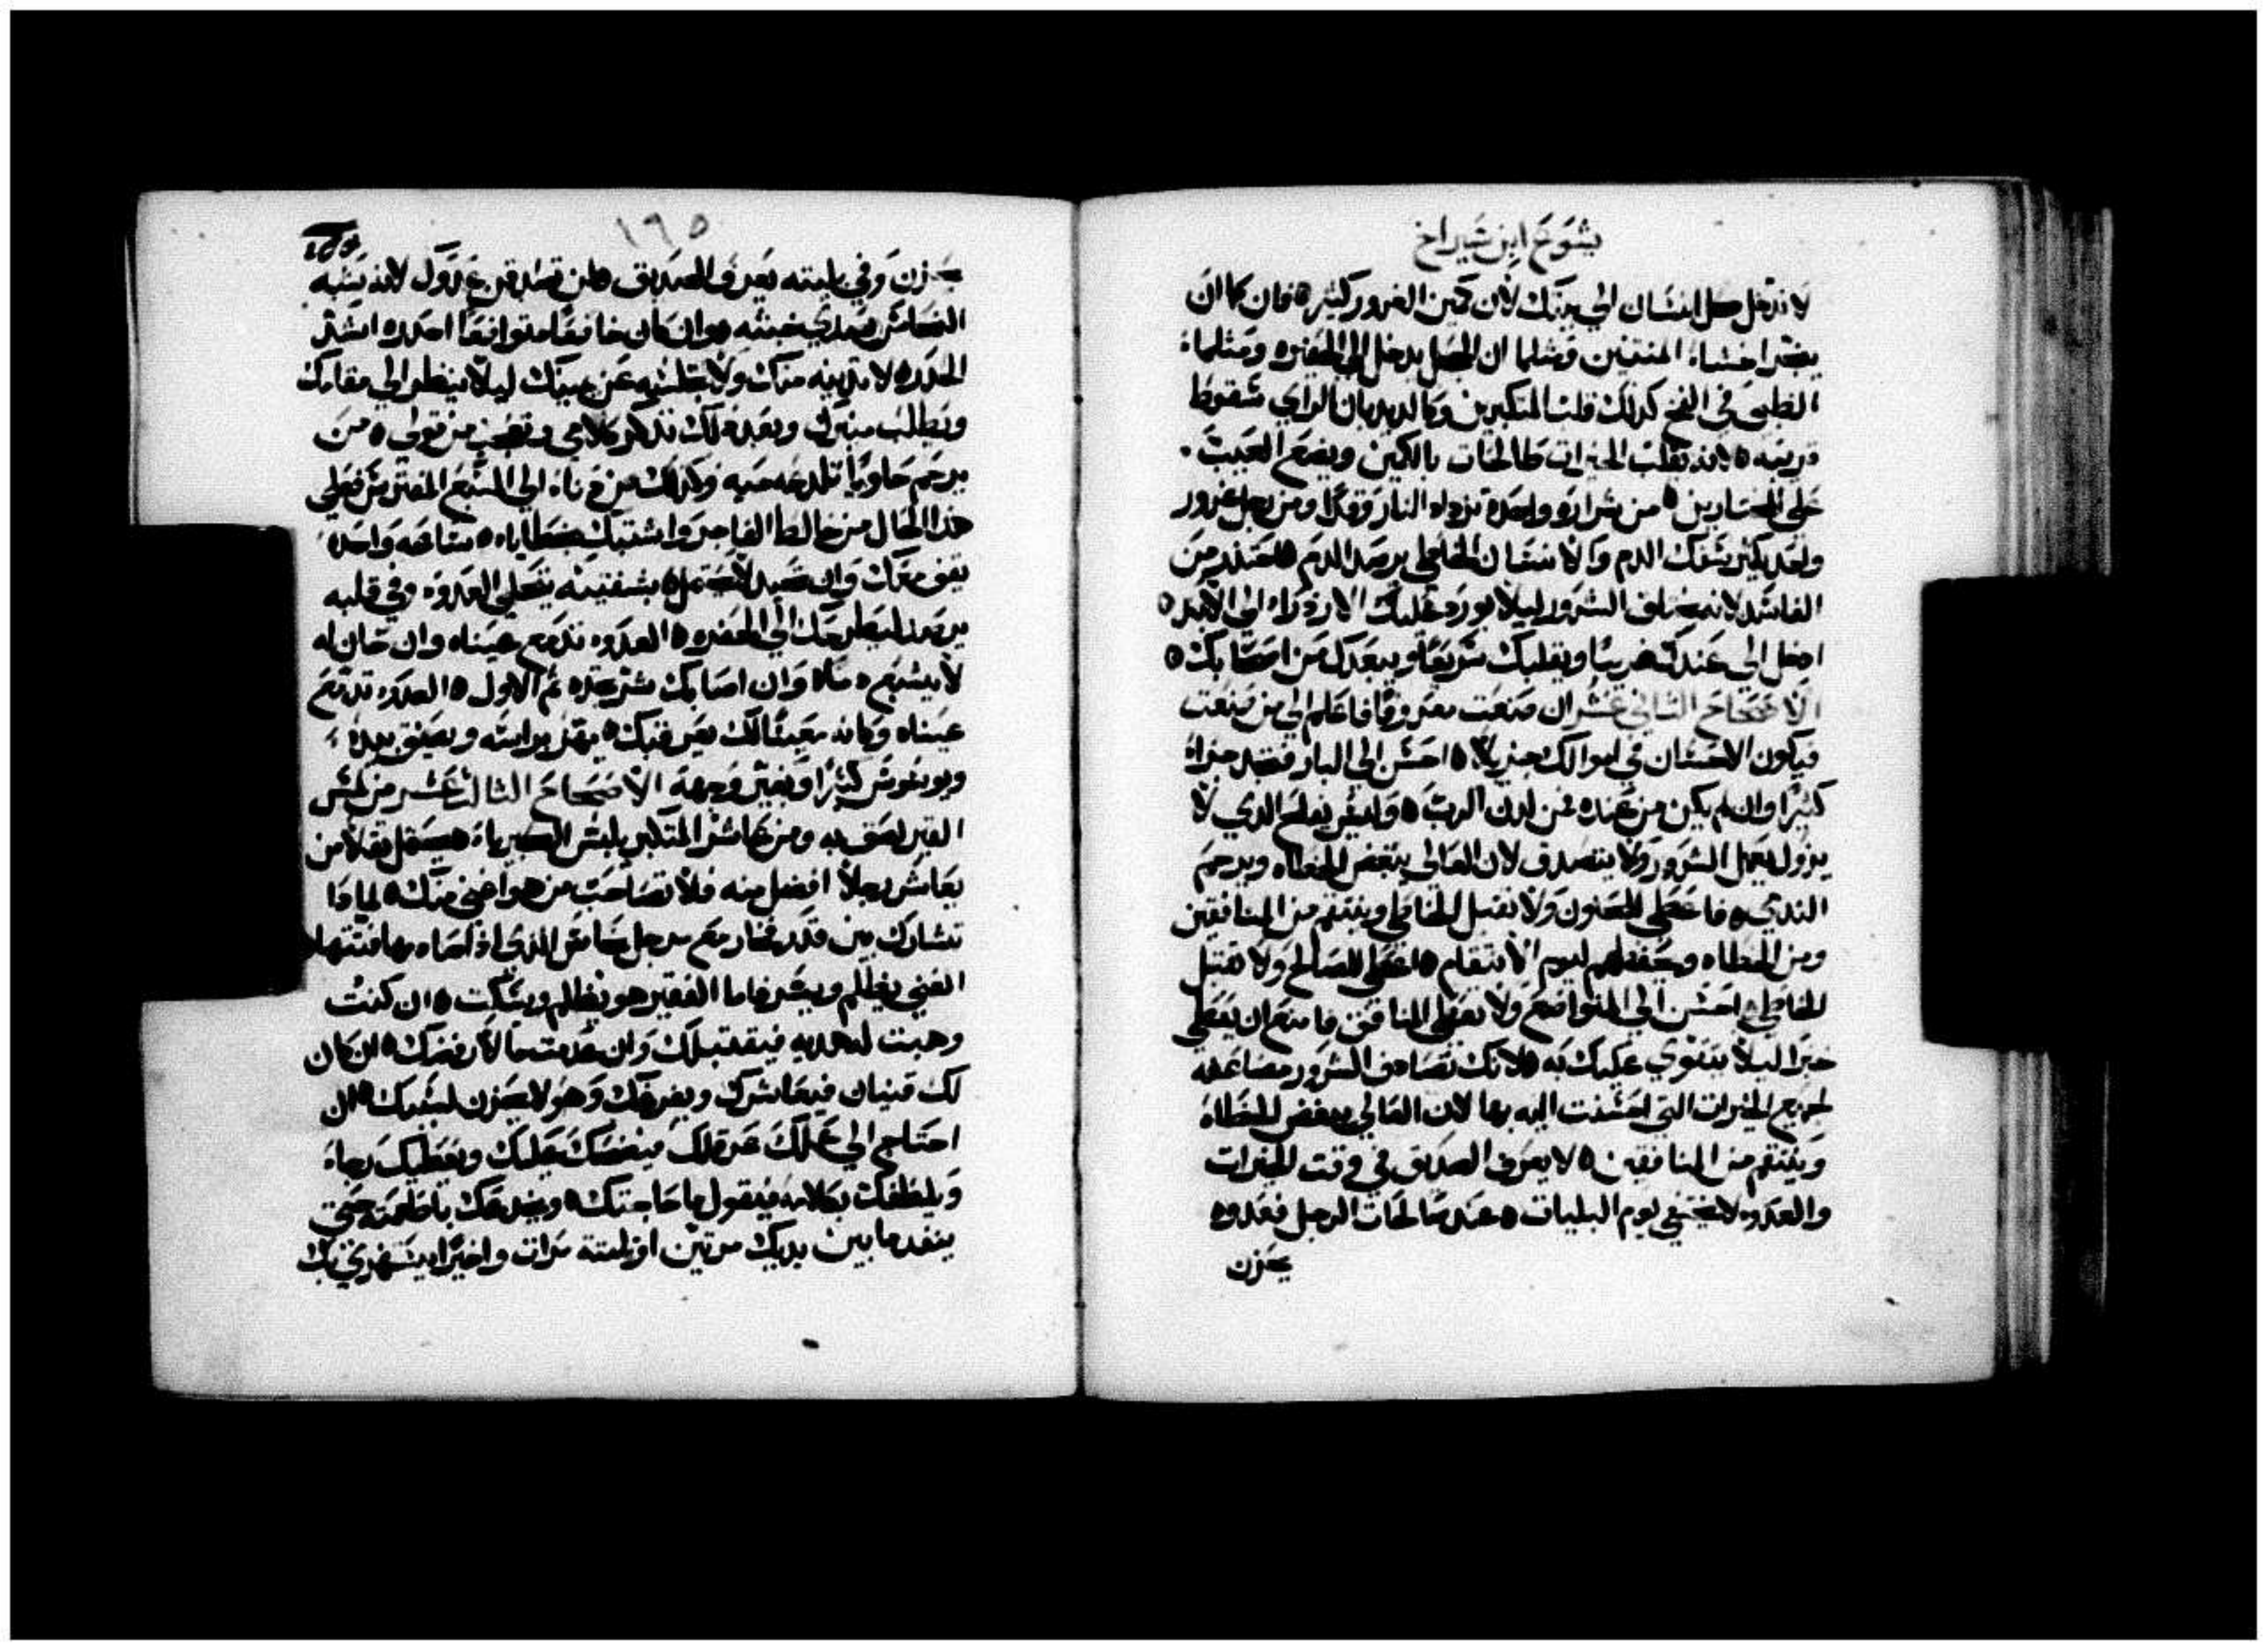 يشوع ابن شيراخ
لا تدخل كل انسان الي بيتك لان كمين الغرور كثيره فان كما ان
يفتر احشاء المنتنين ومثلما ان الحجل يدخل الي الحفيره ومثلما
الظبي في الفخ كذلك قلب المتكبرين وكالديدبان الراي سقوط
قريبه لانه يقلب الخيرات طالحات بالكمين ويضع العيب
علي المختارين من شراره واحده تزداد النار وقودا ومن رجل غرور
واحد يكثر سفك الدم والانسان الخاطي يرصد الدم احتذر من
الفاسد لانه يخلف الشرور ليلا يورد عليك الازدراء الي الابد
ادخل الي عندك غريبا ويقلبك سريعا ويبعدك من اصحابك
الاصحاح الثاني عشر ان صنعت معروفا فاعلم الي من صنعت
فيكون الاحسان في اموالك جزيلا احسن الي البار فتجد جزاء
كثيرا وان لم يكن من عنده فمن لدن الرب وليس يفلح الدي لا
يزول يعمل الشرور ولا يتصدق لان العالي يبغض الخطاه ويرحم
الندي فاعطي للحنون ولا تقبل الخاطي وينتقم من المنافقين
ومن الخطاه ويحفظهم ليوم الانتقام اعطي الصالح ولا تقبل
الخاطي احسن الي المتواضع ولا تعطي المنافق وامنع ان يعطي
خبزا ليلا يتقوي عليك به لانك تصادف الشرور مضاعفه
لجميع الخيرات التي احسنت اليه بها لان العالي يبغض الخطاه
وينتقم من المنافقين لا يعرف الصديق في وقت الخيرات
والعدو لا يختفي يوم البليات عند صالحات الرجل فعدوه
يحزن
١٩٥
يحزن وفي بليته يعرف الصديق فلن تصادقن عدوك لانه يشبه
النحاس يصدي خبثه وان كان خافقا متواضعا احدره اشد
الحدر لا تدنيه منك ولا تجلسه عن يمينك ليلا ينظر الي مقامك
ويطلب منبرك وبعد ذلك تذكر كلامي وتعجب من قولي من
يرحم حاويا تلدغه حيه وكذلك من دناء الي السبع المفترس فعلي
هذا الحال من خالط الفاجر واشتبك بخطاياه ساعه واحده
يقف معك وان تحيد لا يحتمل بشفتيه يحلي العدو وفي قلبه
يرصد ليطرحك الي الحفره العدو تدمع عيناه وان حان له
لا يشبع دما وان اصابك شر تجده ثم الاول العدو تدمع
عيناه وكانه معينا لك يعرقبك يهز براسه ويصفق بيده
ويوسوس كثيرا ويغير وجهه الاصحاح الثالث عشر من لمس
القير لصق به ومن عاشر المتكبر يلبس الكبرياء يحمل ثقلا من
يعاشر رجلا افضل منه فلا تصاحب من هو اغني منك لماذا
تشارك بين قدر فخار مع مرجل نحاس الدي اذا صادمها فتتها
الغني يظلم ويشمر فاما الفقير هو يظلم ويسكت ان كنت
وهبت له هديه فيقتبلك وان عدمت مالا رفضك ان كان
لك قنيان فيعاشرك ويفرغك وهو لا يحزن لسببك ان
احتاج الي عملك عرقلك فيضحك عليك ويعطيك رجاء
ويلطفك بكلامه فيقول ما حاجتك ويخدعك باطعمته حتي
ينفد ما بين يديك مرتين او ثلثة مرات واخيرا يستهزي بك